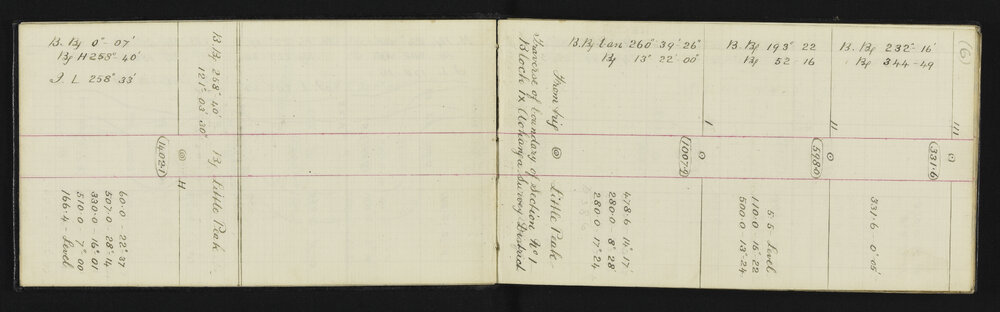 B. Bg 0° - 07'
Bg H 258° 40'
I L 258° 33'
B. Bg 258° 40' Bg Little Peak
121° 03' 30"
1402.1
H
60.0 - 22° 37
507.0 28° 14
330.0 - 16° 01
510.0 7° 00
166.4 - Level
(6)
Traverse of boundary of Section No 1
Block IX Survey District
From trig Little Peak
B. Bg tan 260° 39' 26"
Bg 13° 22' 00"
I
1007.2
478.6 14° 17'
280.0 8° 28
280.0 17° 24
B. Bg 193° 22
Bg 52 - 16
II
598.0
5 5 Level
110.0 - 16° 22
500.0 - 13° 24
B. Bg 232° - 16'
Bg 344 - 49
III
331.6
331.6 0° 05'